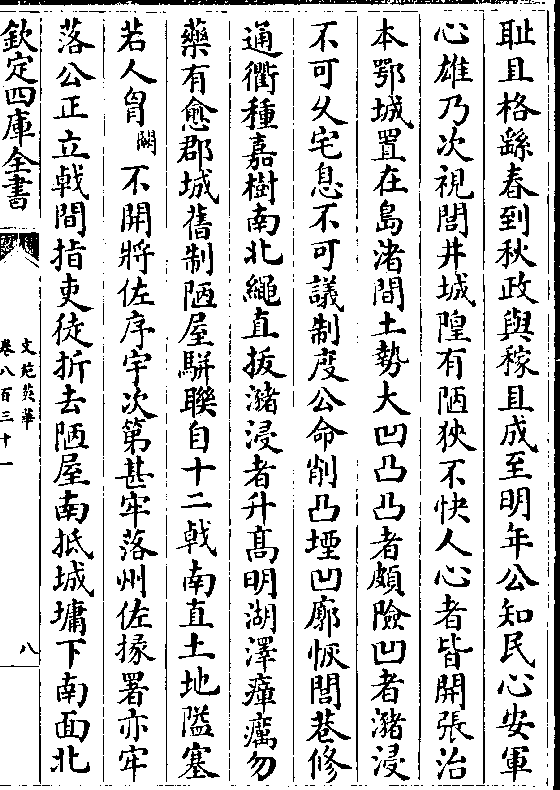 耻且格繇春到秋政與稼且成至明年公知民心安軍
心雄乃次視閭井城隍有陋狹不快人心者皆開張治
本鄂城置在島渚間土勢大凹凸凸者頗險凹者瀦浸
不可久宅息不可議制度公命削凸堙凹廓恢閭巷修
通衢種嘉樹南北繩直拔瀦浸者升高明湖澤瘴癘勿
藥有愈郡城舊制陋屋駢聯自十二戟南直土地隘塞
若人胷闕不開將佐序宇次第甚牢落州佐掾署亦牢
落公正立戟間指吏徒折去陋屋南抵城墉下南面北
欽定四庫全書
文苑英華
卷八百三十一
八